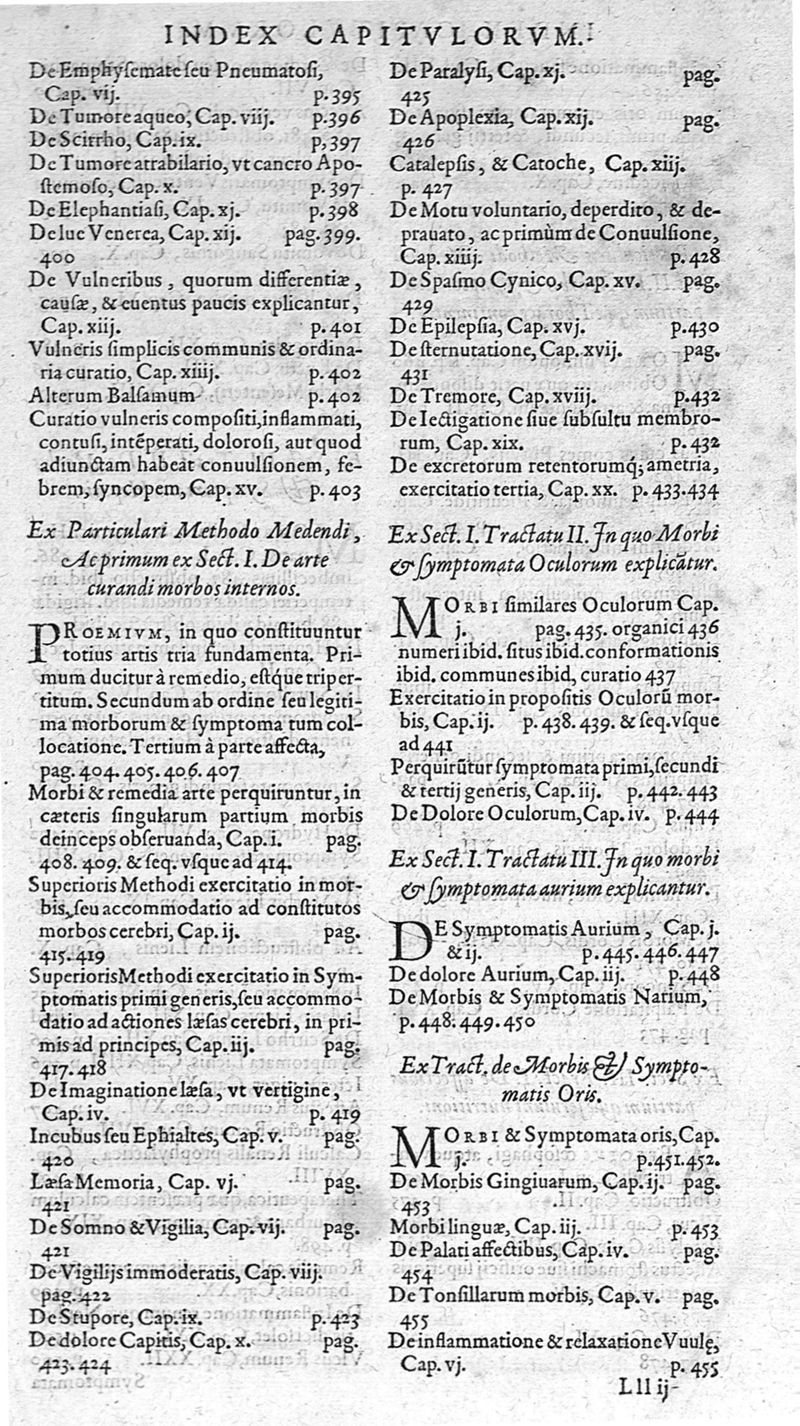 INDEX CAPITVLORVM.
De Emphyſemate ſeu Pneumatoſi,
Cap. vij. p.395
De Tumore aqueo, Cap. viij. p.396
De Scirrho, Cap. ix. p,397
De Tumore atrabilario, vt cancro Apo-
ſtemoſo, Cap. x. p.397
De Elephantiaſi, Cap. xj. p.398
De lue Venerea, Cap. xij. pag.399.
400
De Vulneribus, quorum differentiæ,
cauſæ, & euentus paucis explicantur,
Cap. xiij. p.401
Vulneris ſimplicis communis & ordina-
ria curatio, Cap. xiiij. p.402
Alterum Balſamum p.402
Curatio vulneris compoſiti, inflammati,
contuſi, intēperati, doloroſi, aut quod
adiunctam habeat conuulſionem, fe-
brem, ſyncopem, Cap. xv. p.403
Ex Particulari Methodo Medendi,
Ac primum ex Sect. I. De arte
curandi morbos internos.
PROEMIVM, in quo conſtituuntur
totius artis tria fundamenta. Pri-
mum ducitur à remedio, eſtque triper-
titum. Secundum ab ordine ſeu legiti-
ma morborum & ſymptoma tum col-
locatione. Tertium à parte affecta,
pag. 404. 405. 406. 407
Morbi & remedia arte perquiruntur, in
cæteris ſingularum partium morbis
deinceps obſeruanda, Cap. i. pag.
408. 409. & ſeq. vſque ad 414.
Superioris Methodi exercitatio in mor-
bis, ſeu accommodatio ad conſtitutos
morbos cerebri, Cap. ij. pag.
415.419
Superioris Methodi exercitatio in Sym-
ptomatis primi generis, ſeu accommo-
datio ad actiones læſas cerebri, in pri-
mis ad principes, Cap. iij. pag.
417.418
De Imaginatione læſa, vt vertigine,
Cap. iv. p. 419
Incubus ſeu Ephialtes, Cap. v. pag.
420
Læſa Memoria, Cap. vj. pag.
421
De Somno & Vigilia, Cap. vij. pag.
421
De Vigilijs immoderatis, Cap. viij.
pag.422
De Stupore, Cap. ix. p.423
De dolore Capitis, Cap. x. pag.
423.424
De Paralyſi, Cap. xj. pag.
425
De Apoplexia, Cap. xij. pag.
426
Catalepſis, & Catoche, Cap. xiij.
p. 427
De Motu voluntario, deperdito, & de-
prauato, ac primùm de Conuulſione,
Cap. xiiij. p.428
De Spaſmo Cynico, Cap. xv. pag.
429
De Epilepſia, Cap. xvj. p.430
De ſternutatione, Cap. xvij. pag.
431
De Tremore, Cap. xviij. p.432
De Iectigatione ſiue ſubſultu membro-
rum, Cap. xix. p.432
De excretorum retentorumq́; ametria,
exercitatio tertia, Cap. xx. p. 433.434
Ex Sect. I. Tractatu II. In quo Morbi
& ſymptomata Oculorum explicātur.
MORBI ſimilares Oculorum Cap.
j. pag. 435. organici 436
numeri ibid. ſitus ibid. conformationis
ibid. communes ibid, curatio 437
Exercitatio in propoſitis Oculorū mor-
bis, Cap. ij. p. 438. 439. & ſeq. vſque
ad 441
Perquirūtur ſymptomata primi, ſecundi
& tertij generis, Cap. iij. p. 442.443
De Dolore Oculorum, Cap. iv. p. 444
Ex Sect. I. Tractatu III. In quo morbi
& ſymptomata aurium explicantur.
DE Symptomatis Aurium, Cap. j.
& ij. p.445.446.447
De dolore Aurium, Cap. iij. p.448
De Morbis & Symptomatis Narium,
p. 448. 449. 450
Ex Tract. de Morbis & Sympto-
matis Oris.
MORBI & Symptomata oris, Cap.
j. p.451.452.
De Morbis Gingiuarum, Cap. ij. pag.
453
Morbi linguæ, Cap. iij. p.453
De Palati affectibus, Cap. iv. pag.
454
De Tonſillarum morbis, Cap. v. pag.
455
De inflammatione & relaxatione Vuulę,
Cap. vj. p. 455
Lll ij